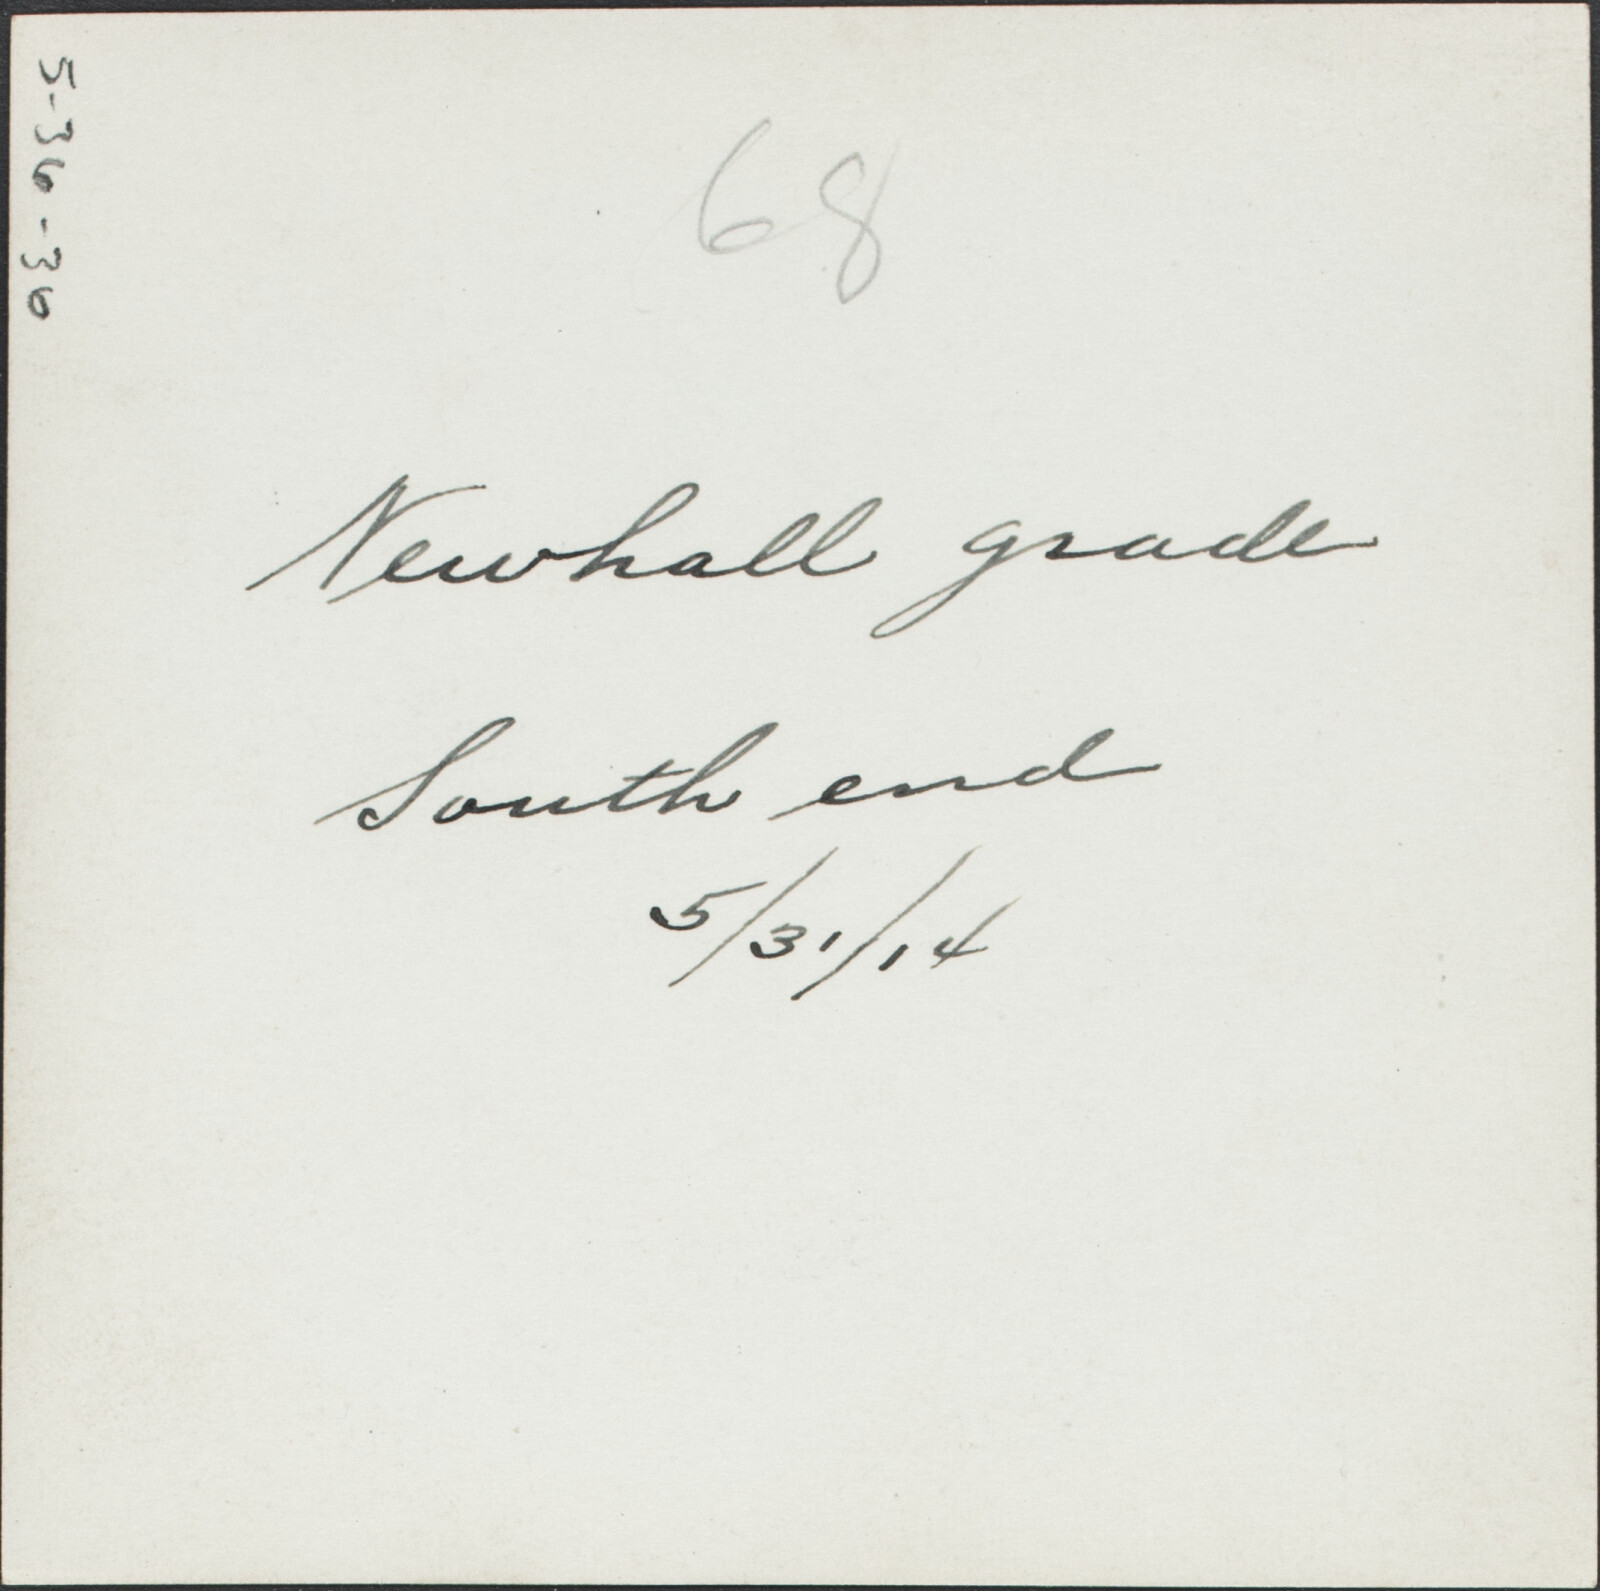 5-36-36
68
Newhall grade
South end
5/31/14